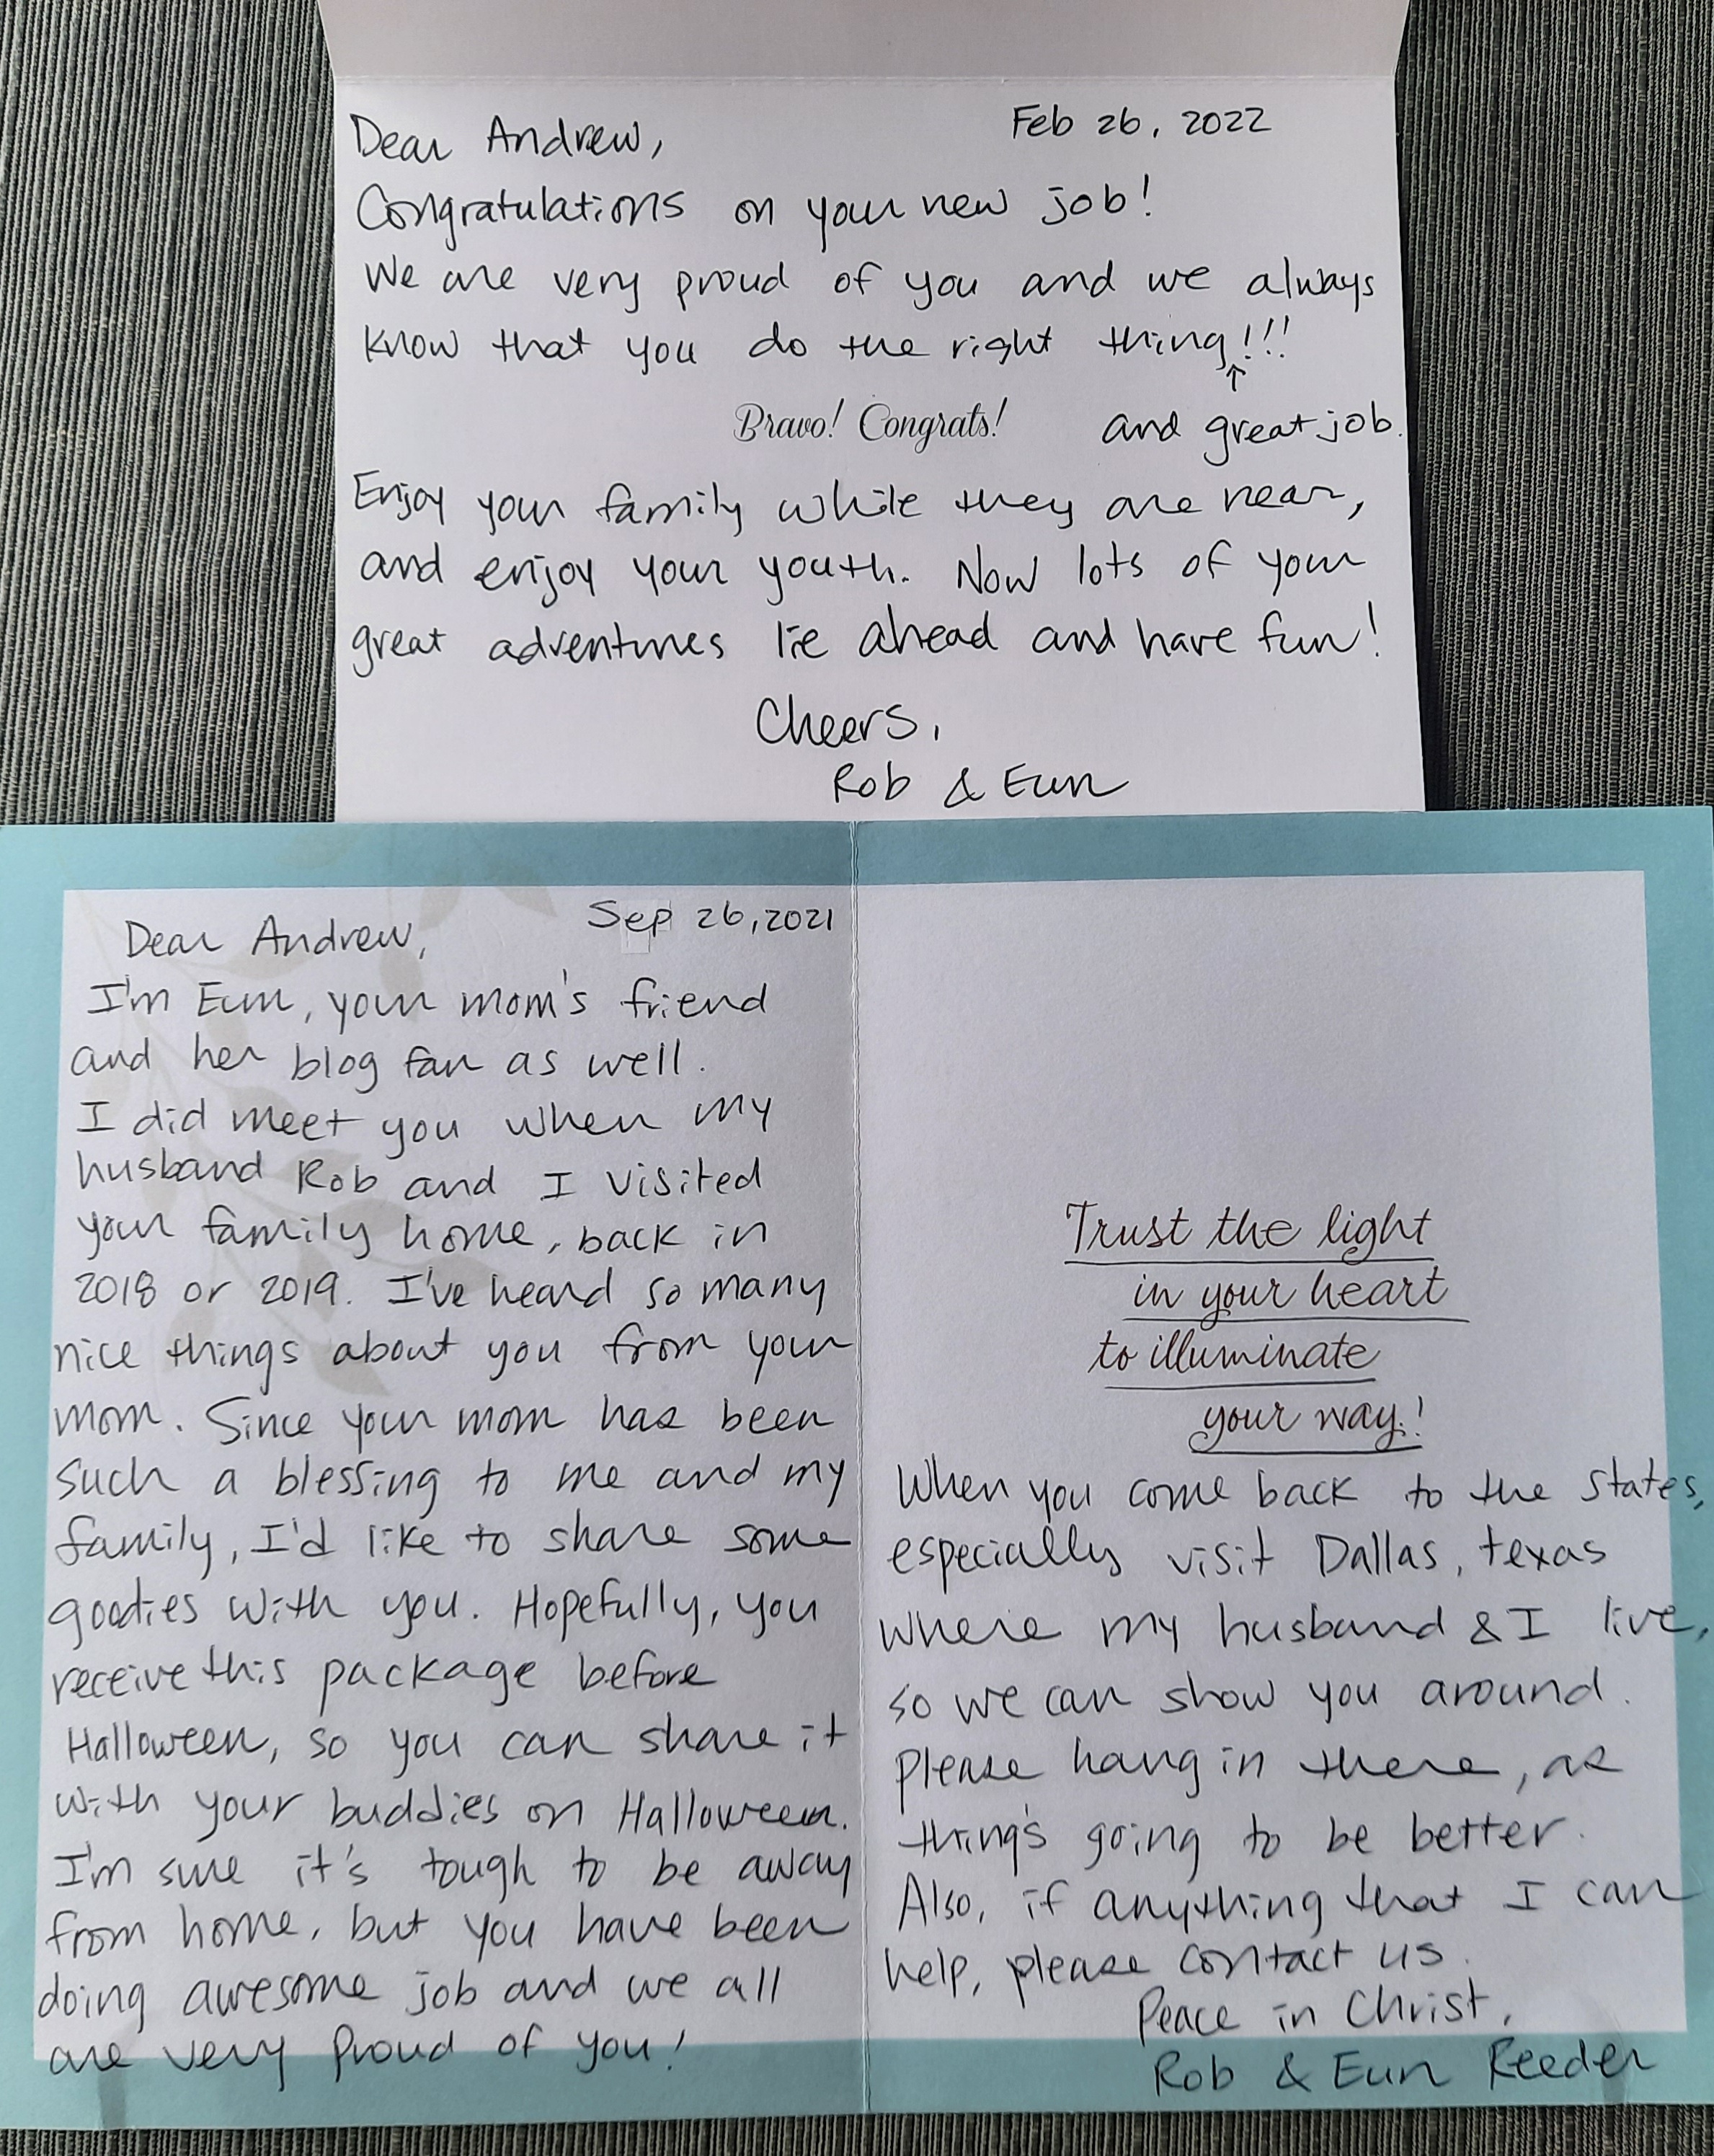 Feb 26, 2022
Dear Andrew,
Congratulations on your new job!
We are very proud of you and we always
know that you do the right thing!!!
↑
Bravo! Congrats!
and great job.
Enjoy your family while they are near,
and enjoy your youth. Now lots of your
great adventures lie ahead and have fun!
Cheers,
Rob & Eun
Sep 26, 2021
Dear Andrew,
I'm Eun, your mom's friend
and her blog fan as well.
I did meet you when my
husband Rob and I visited
your family home, back in
2018 or 2019. I've heard so many
nice things about you from your
mom. Since your mom has been
such a blessing to me and my
family, I'd like to share some
goodies with you. Hopefully, you
receive this package before
Halloween, so you can share it
with your buddies on Halloween.
I'm sure it's tough to be away
from home, but you have been
doing awesome job and we all
are very proud of you!
Trust the light
in your heart
to illuminate
your way.!
When you come back to the states,
especially visit Dallas, Texas
where my husband & I live,
so we can show you around.
Please hang in there, as
things going to be better.
Also, if anything that I can
help, please contact us.
Peace in Christ,
Rob & Eun Reeder